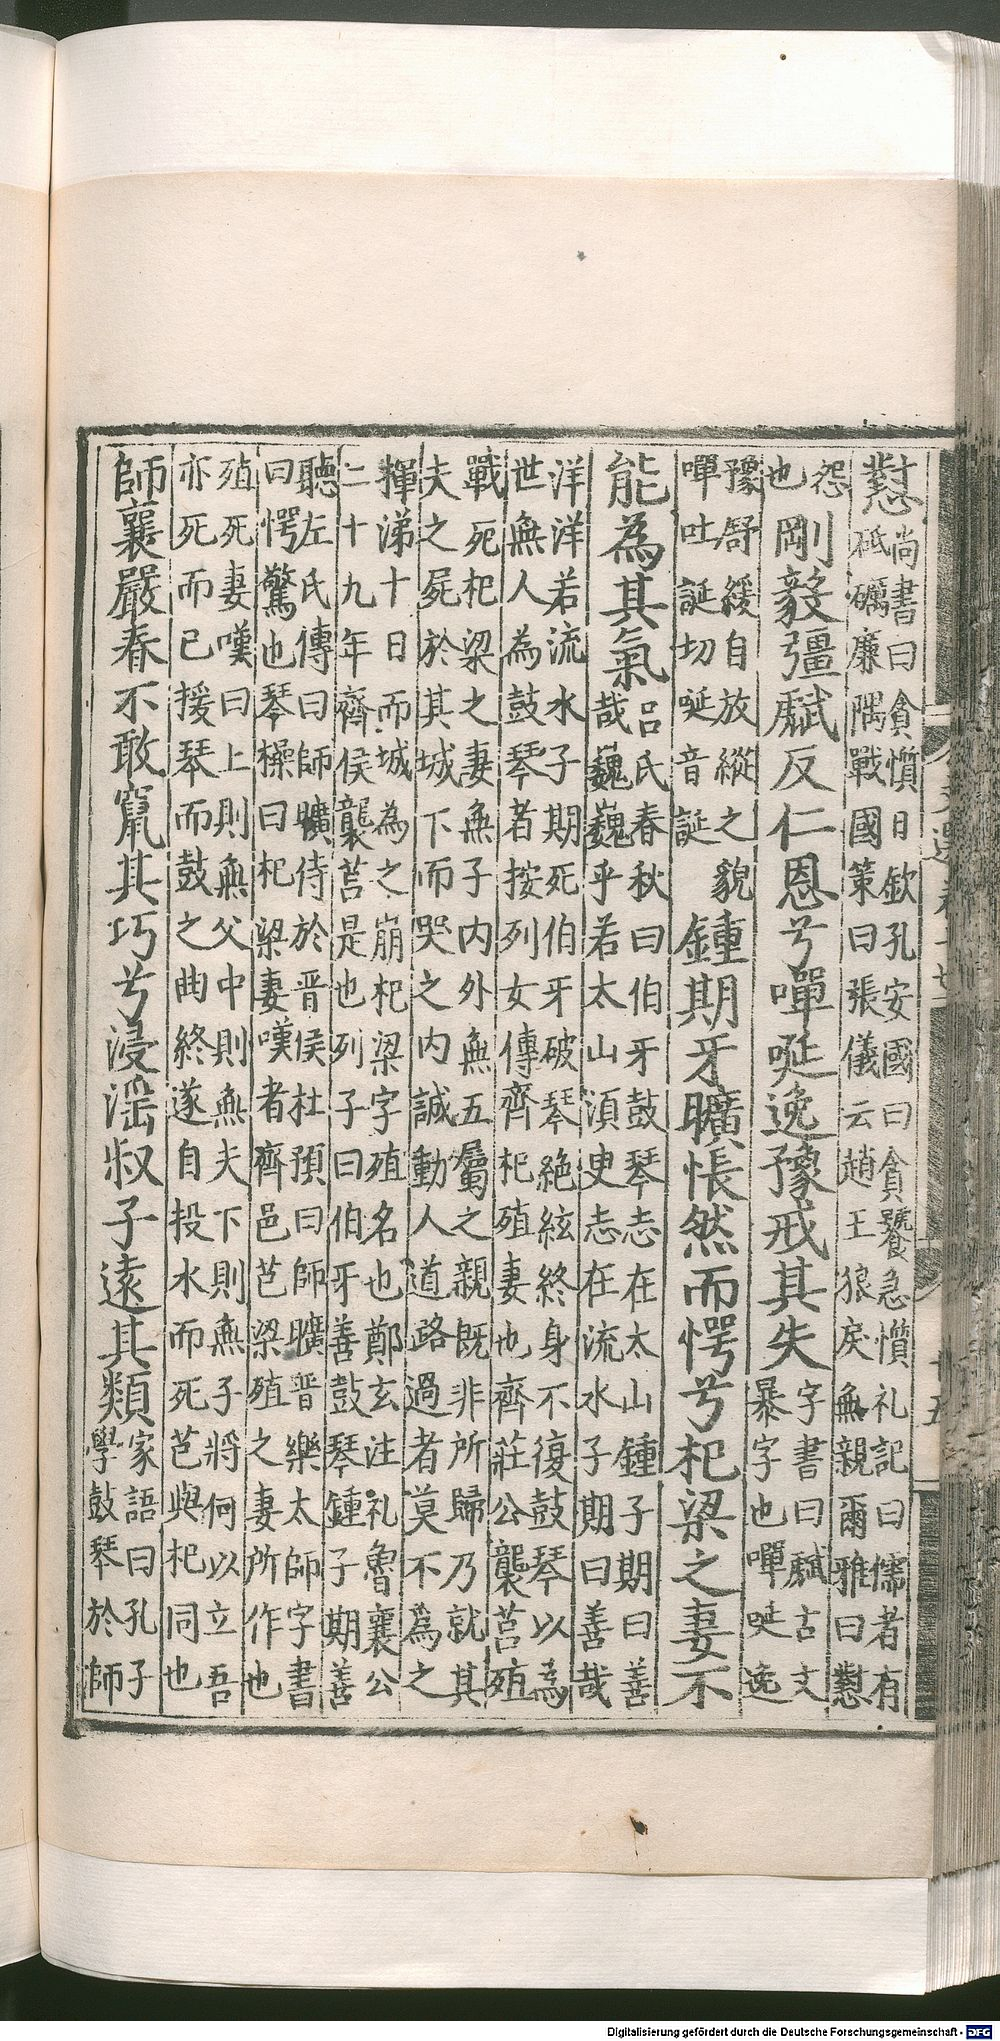 懟尚書曰貪惏日欽孔安國曰貪饕急懫礼記曰儒者有
砥礪廉隅戰國策曰張儀云趙王狼戾無親爾雅曰懟
怨
也剛毅彊虣反仁恩兮嘽唌逸豫戒其失字書曰虣古文
暴字也嘽唌逸
豫舒緩自放縱之貌
嘽吐誕切唌音誕鍾期牙曠悵然而愕兮杞梁之妻不
能為其氣呂氏春秋曰伯牙鼓琴志在太山鍾子期曰善
哉巍巍乎若太山須臾志在流水子期曰善哉
洋洋若流水子期死伯牙破琴絶絃終身不復鼓琴以為
世無人為鼓琴者按列女傳齊杞殖妻也齊莊公襲莒殖
戰死杞梁之妻無子內外無五屬之親既非所歸乃就其
夫之屍於其城下而哭之內誠動人道路過者莫不為之
揮涕十日而城為之崩杞梁字殖名也鄭玄注礼魯襄公
二十九年齊侯襲莒是也列子曰伯牙善鼓琴鍾子期善
聽左氏傳曰師曠侍於晉侯杜預曰師曠晉樂太師字書
曰愕驚也琴操曰杞梁妻嘆者齊邑芑梁殖之妻所作也
殖死妻嘆曰上則無父中則無夫下則無子將何以立吾
亦死而已援琴而鼓之曲終遂自投水而死芑與杞同也
師襄嚴春不敢竄其巧兮浸淫叔子遠其類家語曰孔子
學鼓琴於師
Digitalisierung gefördert durch die Deutsche Forschungsgemeinschaft - DFG